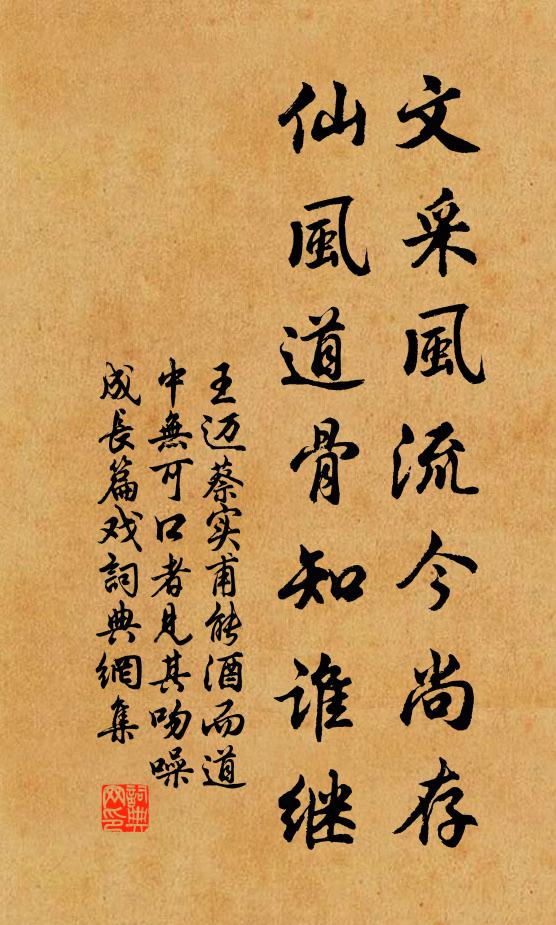 文采風流今尚存
仙風道骨知谁继
王迈蔡实甫能酒而道
中無可口者見其吻噪
成長篇戏詞典網集
詞典網印